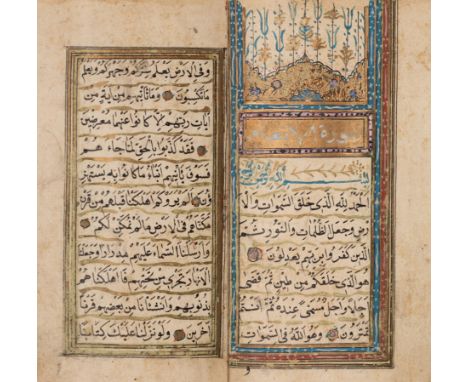 سورة الانعام
بسم الله الرحمن الرحيم
الحمد لله الذي خلق السموات والا
رض وجعل الظلمات والنور ثم
الذين كفروا بربهم يعدلون
هو الذي خلقكم من طين ثم قضى
اجلا واجل مسمى عنده ثم انتم
تمترون وهو الله في السموات
و
وفي الارض يعلم سركم وجهركم ويعلم
ما تكسبون وما تاتيهم من اية من
ايات ربهم الا كانوا عنها معرضين
فقد كذبوا بالحق لما جاء هم
فسوف ياتيهم انباء ما كانوا به يستهز
ؤن الم يروا كم اهلكنا قبلهم من قرن
مكناهم في الارض ما لم نمكن لكم
وارسلنا السماء عليهم مدرارا وجعلنا
الانهار تجري من تحتهم فاهلكنا هم
بذنوبهم وانشأنا من بعدهم قرنا
اخرين ولو نزلنا عليك كتابا